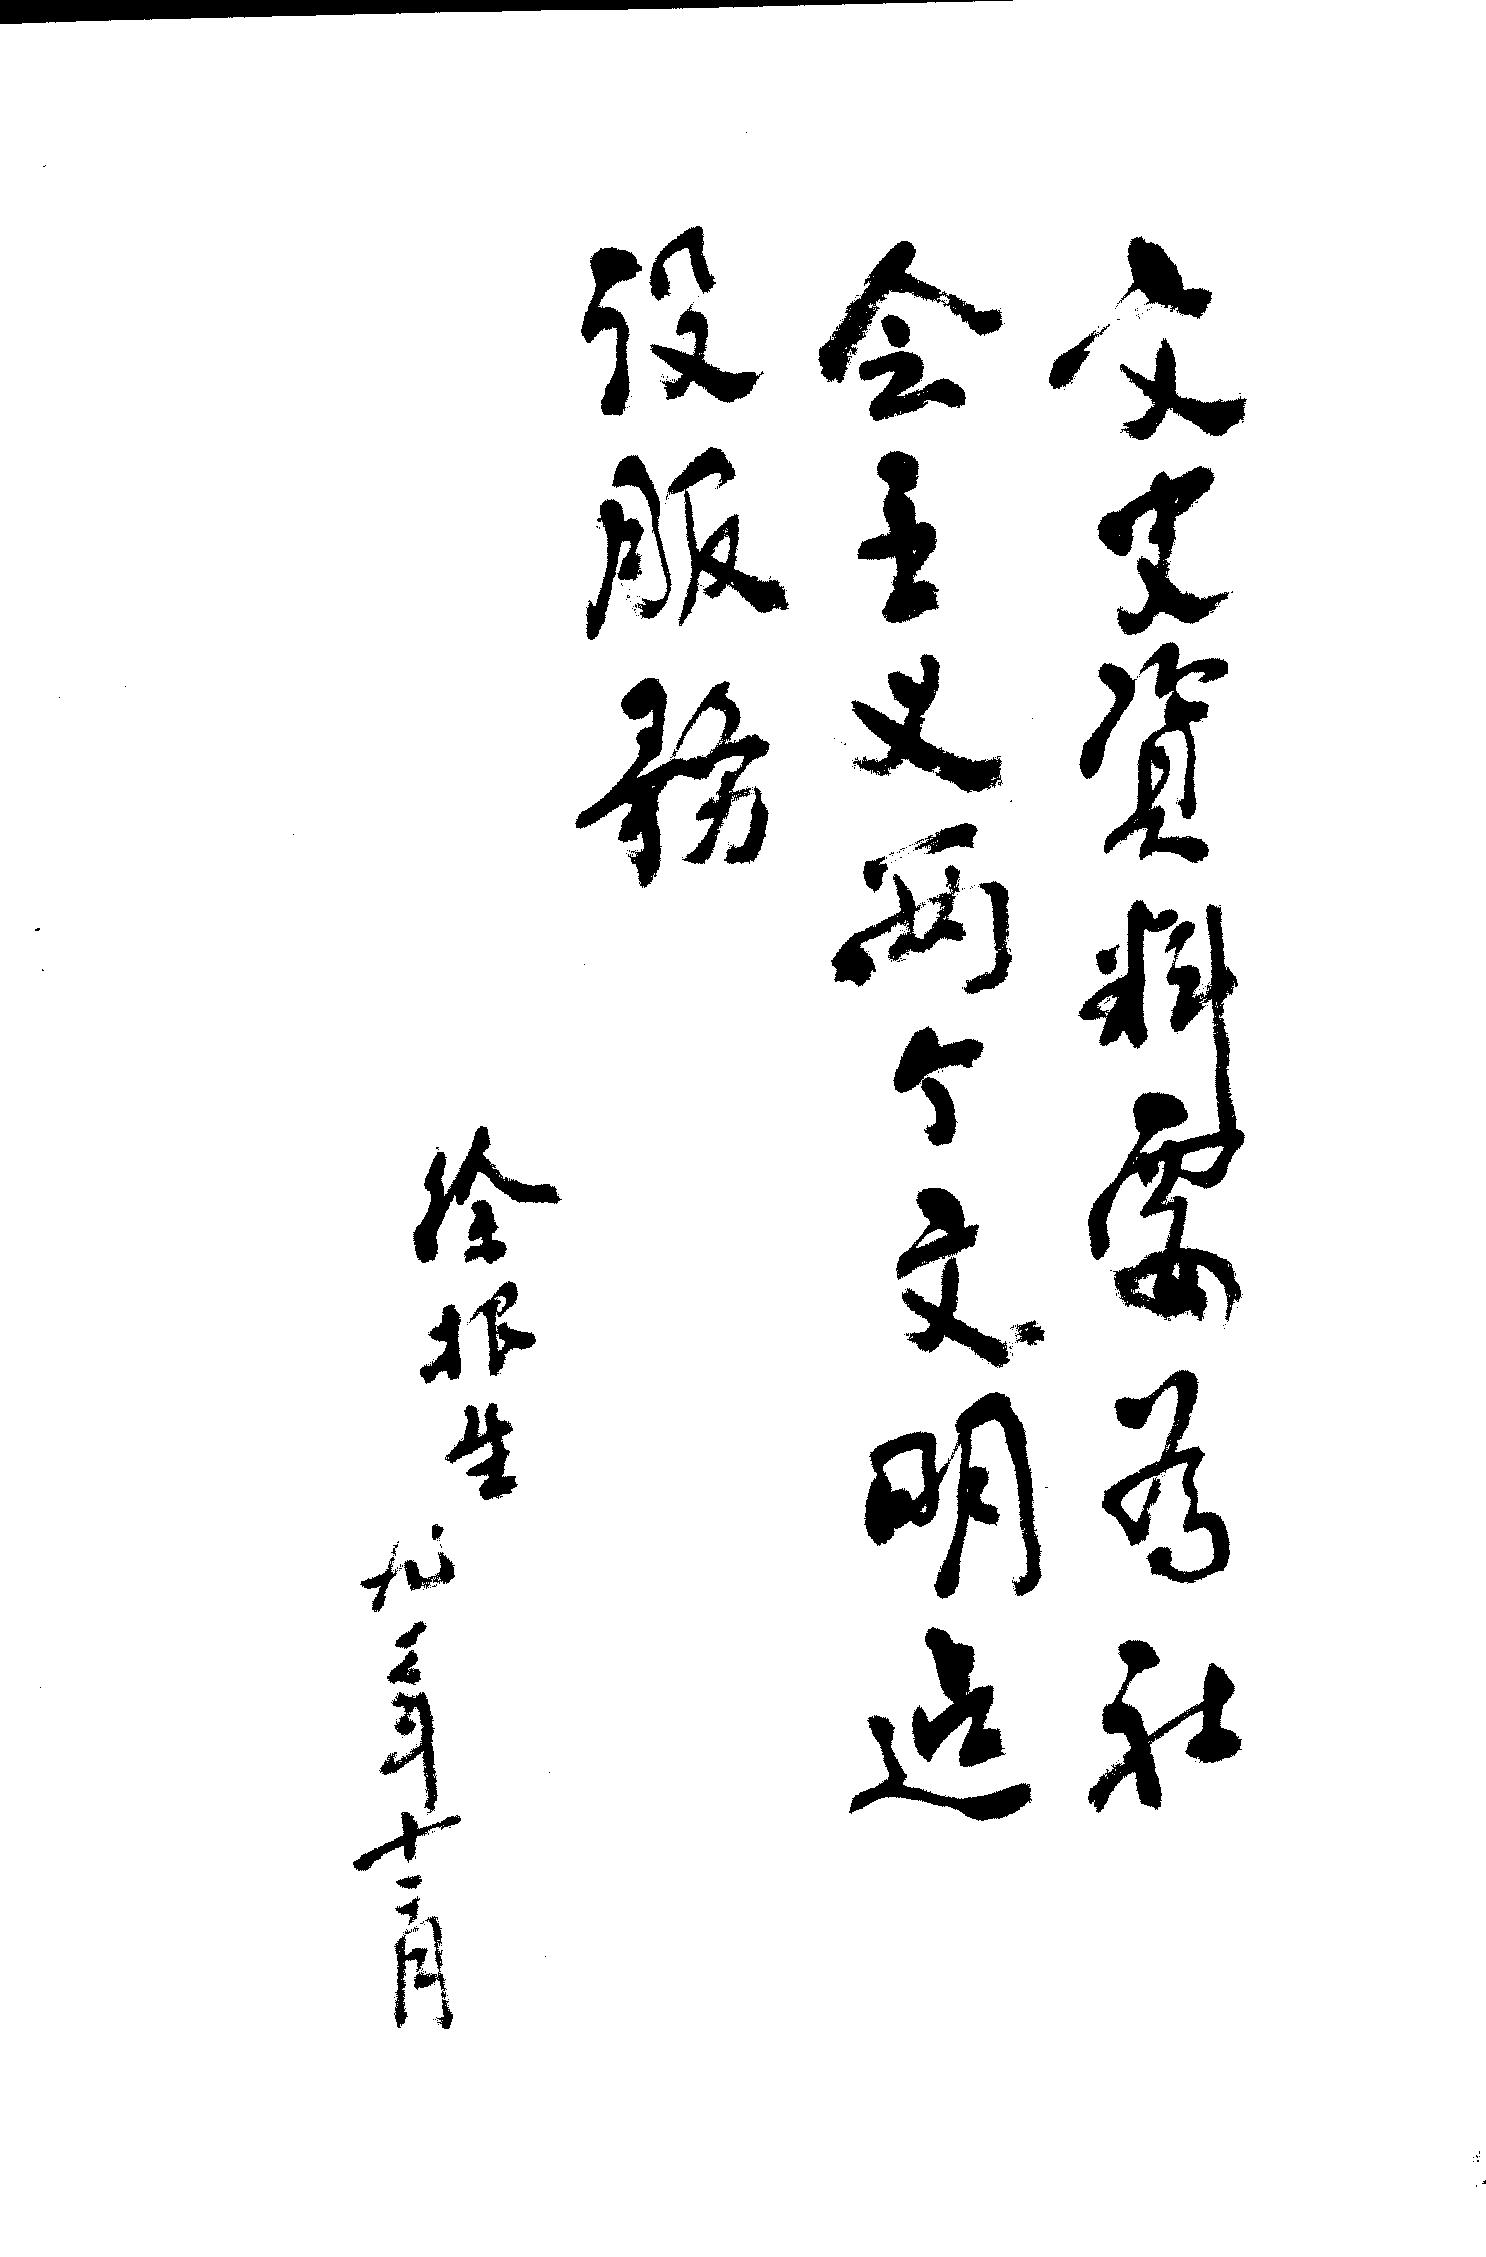 文史資料要为社
会主义两个文明建
设服務
徐根生
九三年十二月